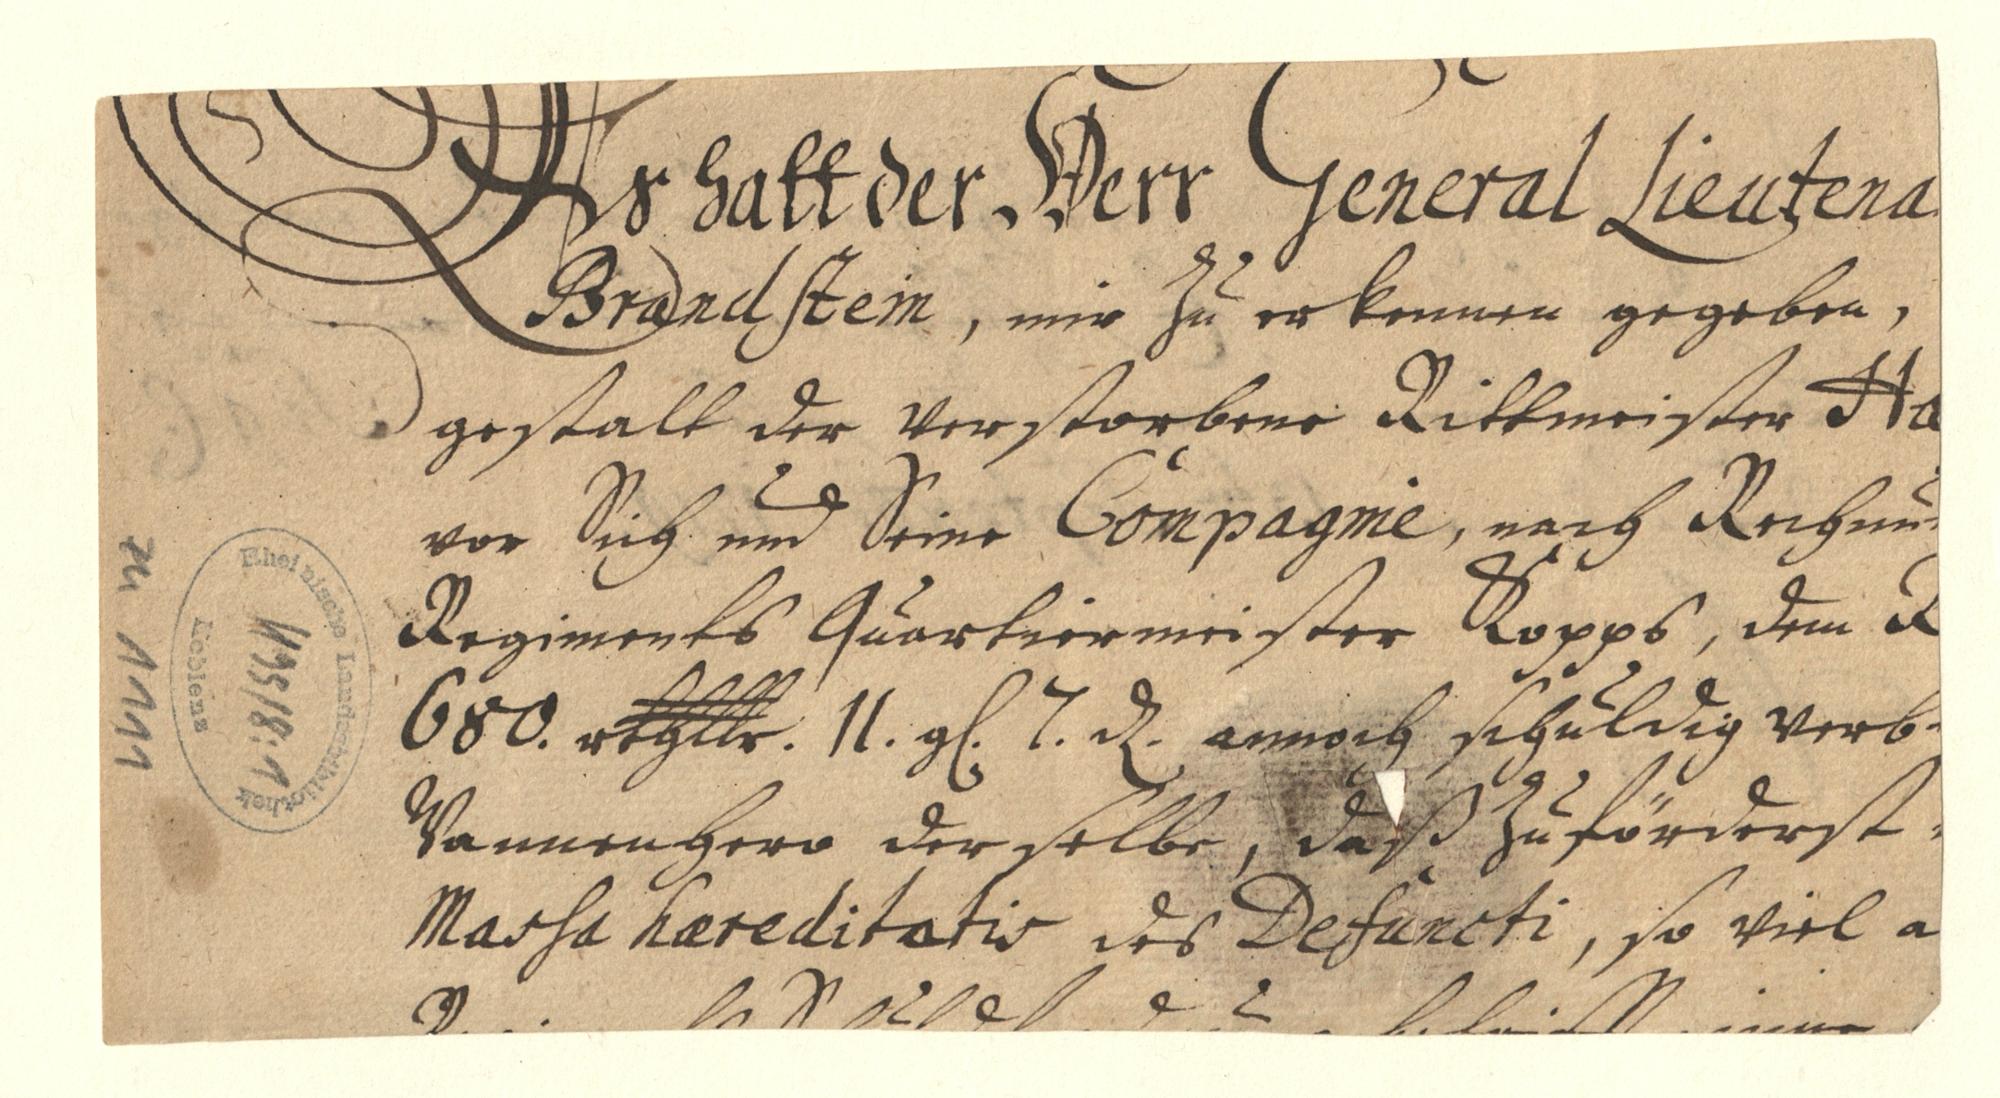 Es hatt der Herr General Lieutena
Brandstein, mir zu erkennen gegeben,
gestalt der verstorbene Rittmeister Ha
vor Sich und Seine Compagnie, nach Rechnu
Regiments Quartiermeister Kopps, dem R
680. rthllr. 11. gl. 7. d. annoch schuldig verb
Wannenhero derselbe, daß zuförderst
Massa hæreditatis des Defuncti, so viel a
zu 1111
Rheinische Landesbibliothek
H 95/8:1
Koblenz